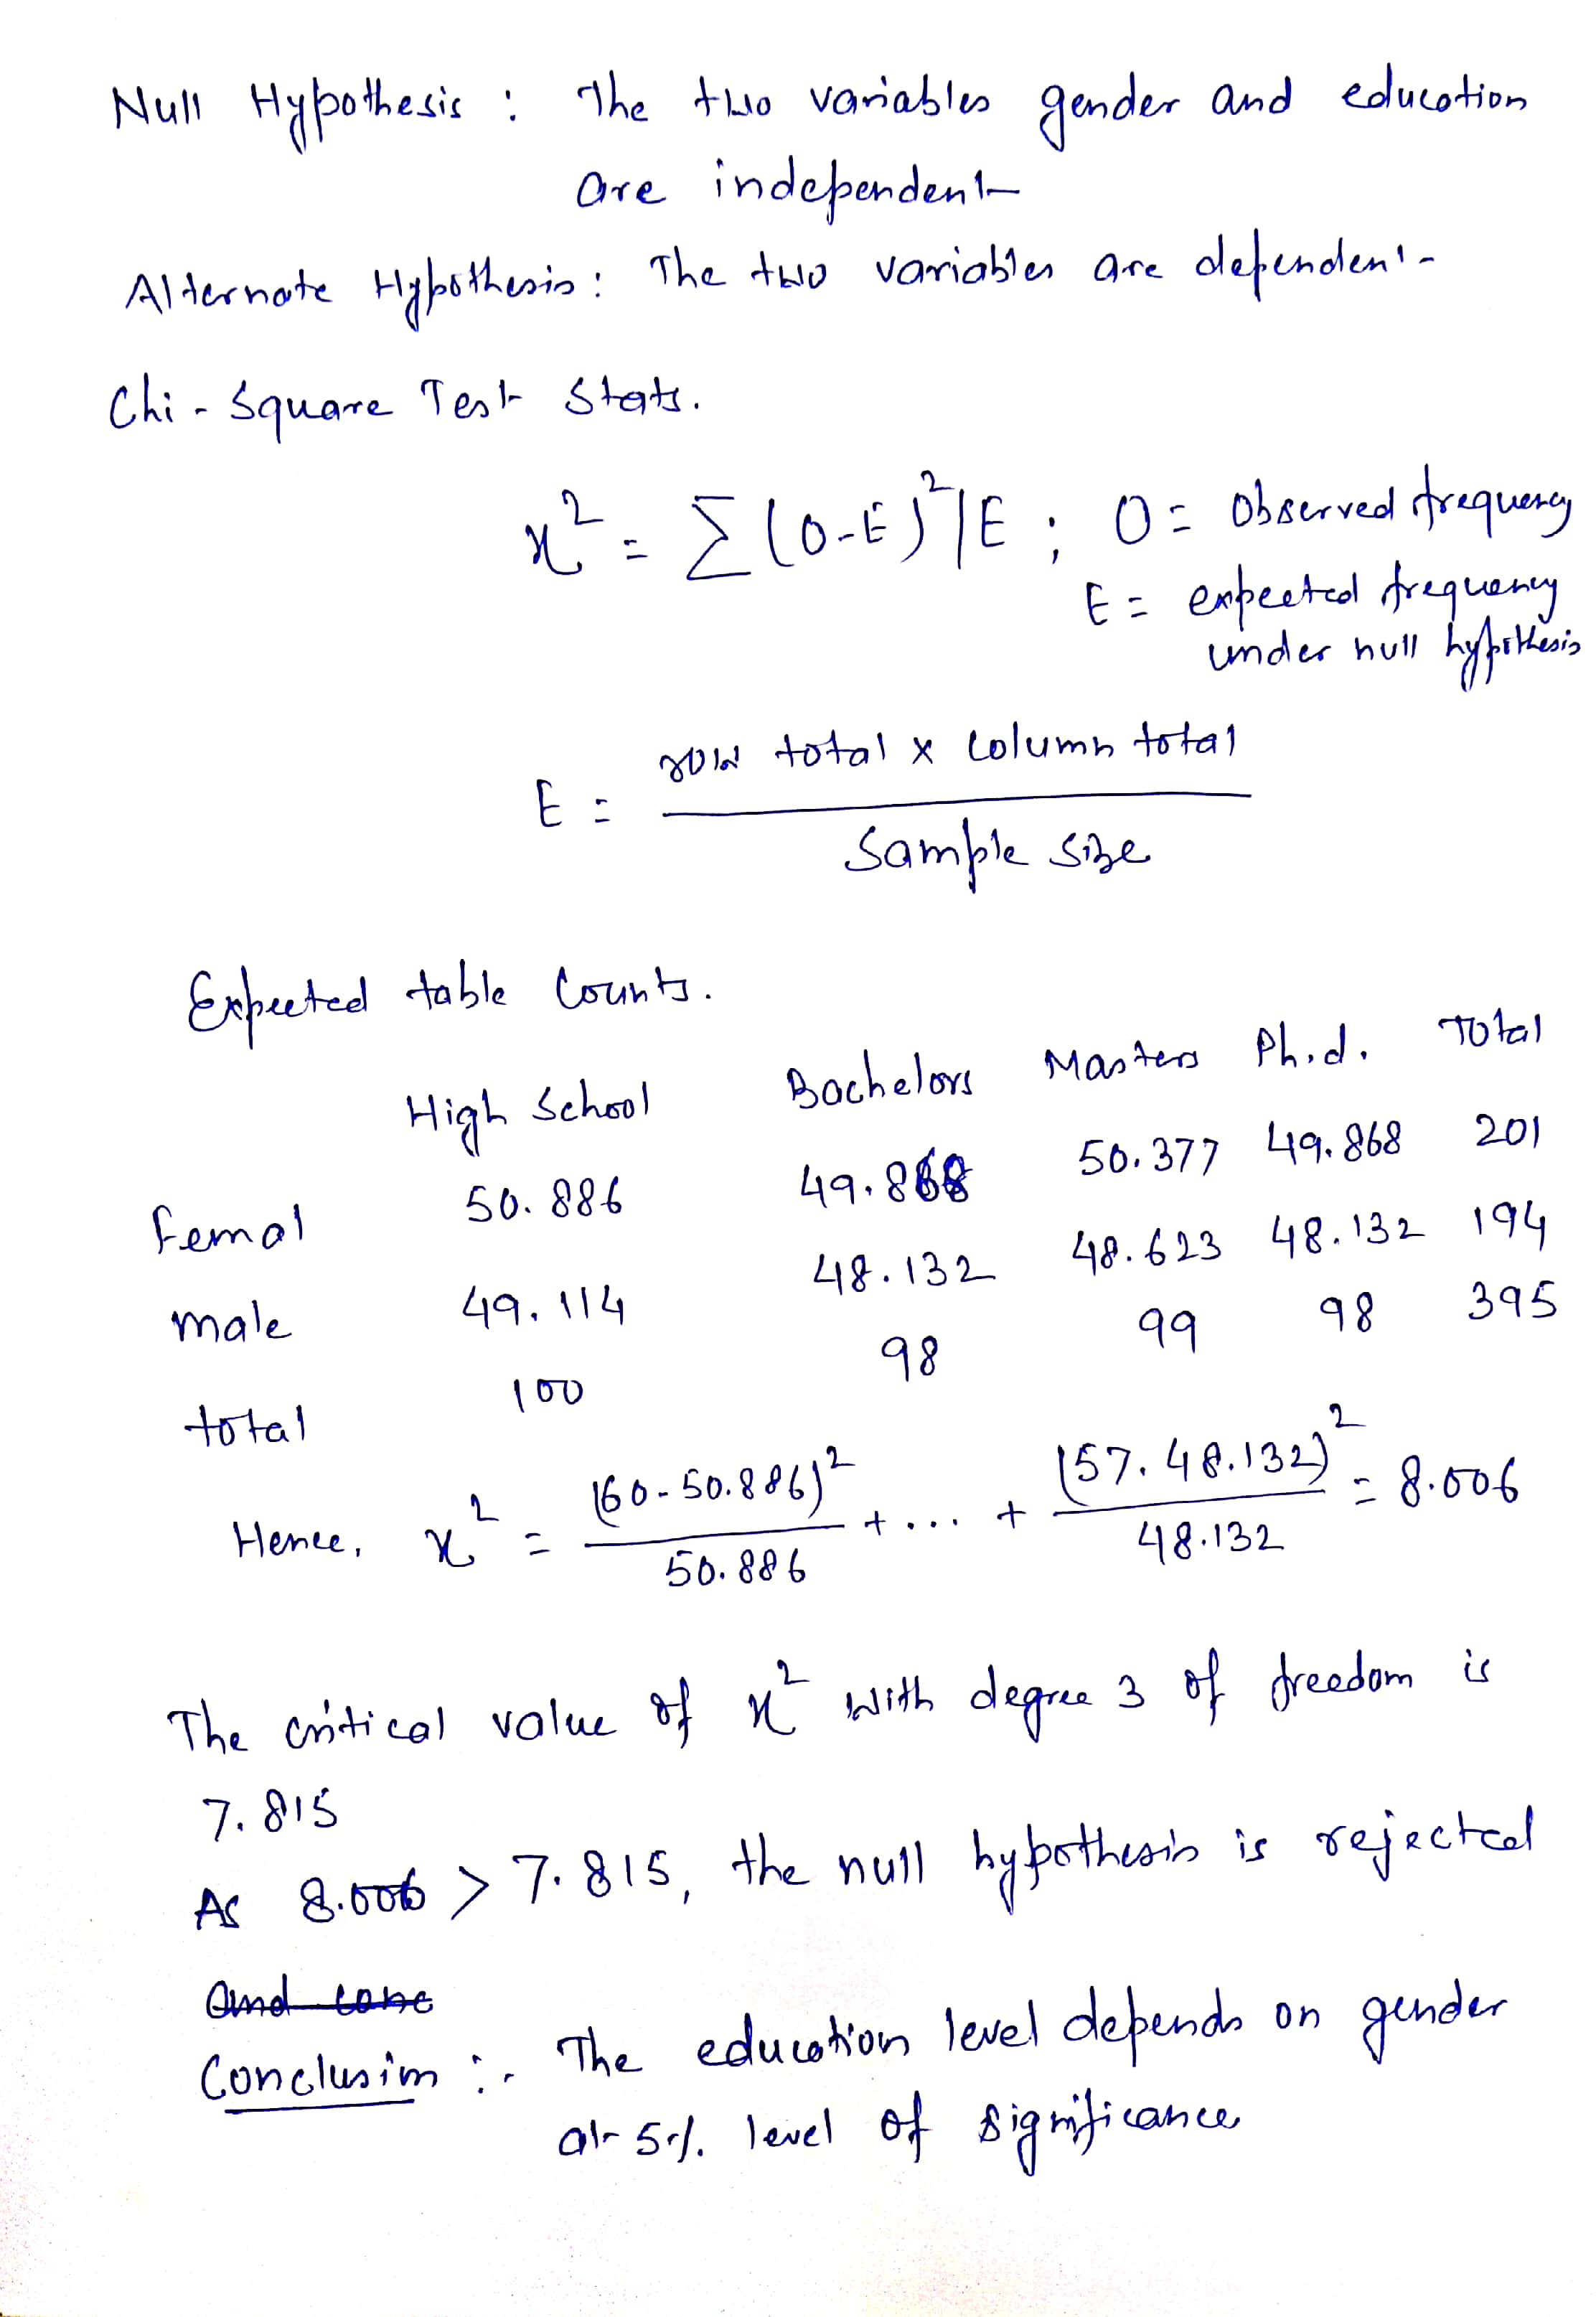 Null Hypothesis : The two variables gender and education
are independent
Alternate Hypothesis : The two variables are dependent
Chi - Square Test Stats.
χ² = Σ (O-E)²/E ; O = Observed frequency
E = expected frequency
under null hypothesis
E = row total x Column total / Sample size
Expected table Counts.
High School Bachelors Masters Ph.d. Total
Femal 50.886 49.868 50.377 49.868 201
Male 49.114 48.132 48.623 48.132 194
total 100 98 99 98 395
Hence, χ² = (60-50.886)²/50.886 + ... + (57.48.132)²/48.132 = 8.006
The critical value of χ² with degree 3 of freedom is
7.815
As 8.006 > 7.815, the null hypothesis is rejected
and conc
Conclusion :- The education level depends on gender
at 5% level of significance